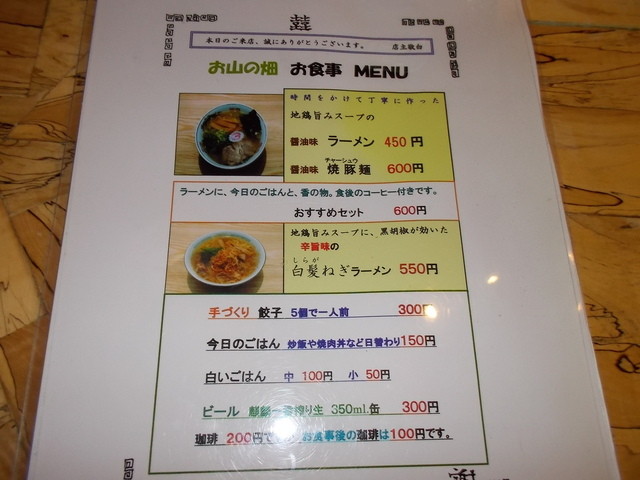 本日のご来店、誠にありがとうございます。 店主敬白
お山の畑 お食事 MENU
時間をかけて丁寧に作った
地鶏旨みスープの
醤油味 ラーメン 450円
チャーシュウ
醤油味 焼豚麺 600円
ラーメンに、今日のごはんと、香の物。食後のコーヒー付きです。
おすすめセット 600円
地鶏旨みスープに、黒胡椒が効いた
辛旨味の
しらが
白髪ねぎラーメン 550円
手づくり 餃子 5個で一人前 300円
今日のごはん 炒飯や焼肉丼など日替わり150円
白いごはん 中 100円 小 50円
ビール 麒麟一番搾り生 350ml.缶 300円
珈琲 200円で お食事後の珈琲は100円です。